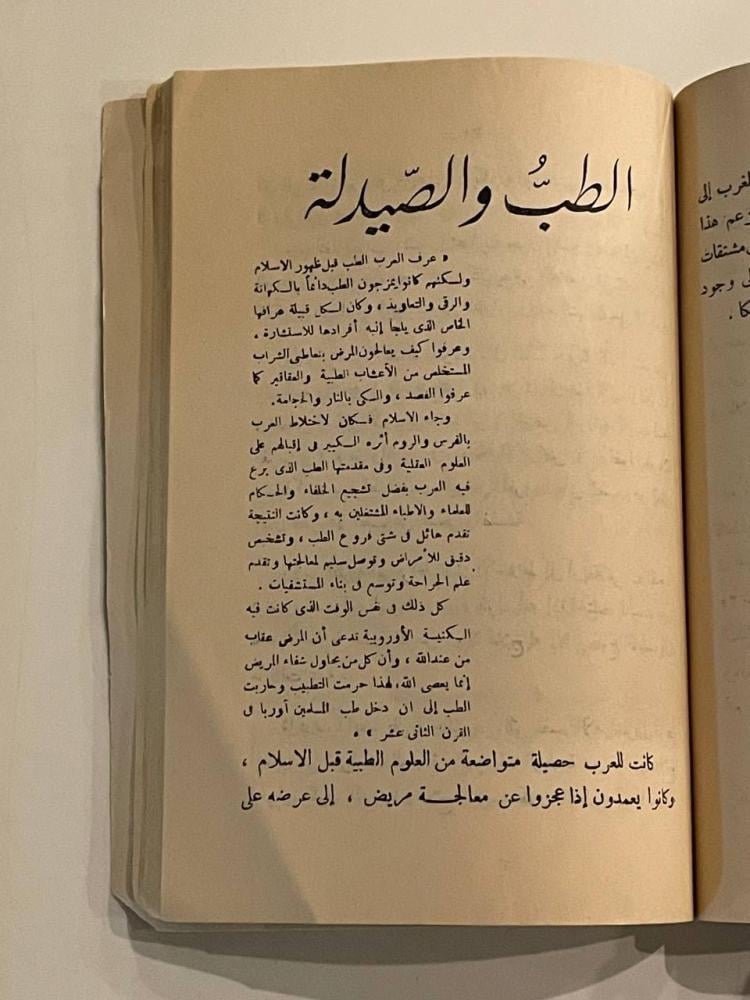 الطبُّ والصّيدلة
« عرف العرب الطب قبل ظهور الاسلام
ولكنهم كانوا يمزجون الطب دائماً بالكهانة
والرقى والتعاويذ ، وكان لكل قبيلة عرافها
الخاص الذى يلجأ إليه أفرادها للاستشارة .
وعرفوا كيف يعالجون المرض بتعاطى الشراب
المستخلص من الأعشاب الطبية والعقاقير كما
عرفوا الفصد ، والكى بالنار والحجامة .
وجاء الاسلام فكان لاختلاط العرب
بالفرس والروم أثره الكبير فى إقبالهم على
العلوم العقلية وفى مقدمتها الطب الذى بَرع
فيه العرب بفضل تشجيع الخلفاء والحكام
للعلماء والاطباء المشتغلين به ، وكانت النتيجة
تقدم هائل فى شتى فروع الطب ، وتشخيص
دقيق للأمراض وتوصل سليم لمعالجتها وتقدم
علم الجراحة وتوسع فى بناء المستشفيات .
كل ذلك فى نفس الوقت الذى كانت فيه
الكنيسة الأوروبية تدعى أن المرض عقاب
من عند الله ، وأن كل من يحاول شفاء المريض
إنما يعصى الله، لهذا حرمت التطبيب وحاربت
الطب إلى ان دخل طب المسلمين أوربا فى
القرن الثانى عشر » .
كانت للعرب حصيلة متواضعة من العلوم الطبية قبل الاسلام ،
وكانوا يعمدون إذا عجزوا عن معالجة مريض ، إلى عرضه على
لغرب إلى
زعم هذا
مشتقات
وجود
كا .